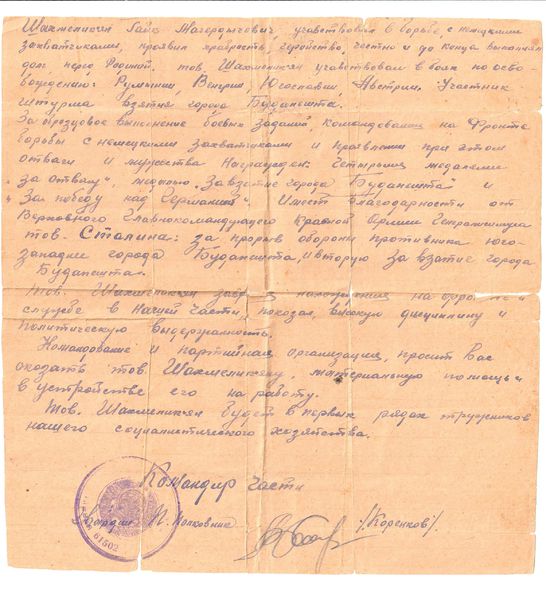 Шахмеликян Гайк Магердычович, учавствовал в борьбе, с немецкими
захватчиками, проявил храбрость, геройство, честно и до конца выполнял
долг перед Родиной. тов. Шахмеликян учавствовал в боях по осво
бождению: Румынии, Венгрии, Югославии, Австрии. Участник
штурма взятия города Будапешта.
За образцовое выполнение боевых заданий, командования на фронте
борьбы с немецкими захватчиками и проявленные при этом
отваги и мужества Награжден: четырьмя медалями
„за отвагу", медалью „За взятие города Будапешта" и
„За победу над Германией". Имеет благодарности от
Верховного Главнокомандующего Красной Армии Генералиссимуса
тов. Сталина: за прорыв обороны противника юго-
западнее города Будапешта, и вторую за взятие города
Будапешта.
Тов. Шахмеликян за время нахождения на фронте и
службе в нашей части, показал, высокую дисциплину и
политическую выдержанность.
Командование и партийная организация, просит Вас
оказать тов Шахмеликяну, материальную помощь и
в устройстве его на работу.
Тов. Шахмеликян будет в первых рядах тружеников
нашего социалистического хозяйства.
Командир части
Гвардии П. Полковник /Коренков/.
61502